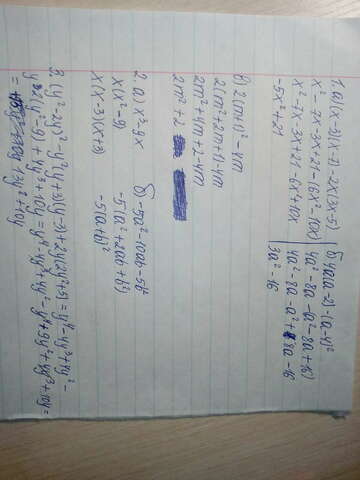 1. а) (x-3)(x-7)-2x(3x-5)
x²-7x-3x+21-(6x²-10x)
x²-7x-3x+21-6x+10x
-5x²+21
б) 4a(a-2)-(a-4)²
4a²-8a-(a²-8a+16)
4a²-8a-a²+8a-16
3a²-16
в) 2(m+1)²-4m
2(m²+2m+1)-4m
2m²+4m+2-4m
2m²+2
2. а) x³-9x
x(x²-9)
x(x-3)(x+3)
б) -5a²-10ab-5b²
-5(a²+2ab+b²)
-5(a+b)²
3. (y²-2y)²-y²(y+3)(y-3)+2y(2y²+5)=y⁴-4y³+4y²-
y²(y²-9)+4y³+10y=y⁴-4y³+4y²-y⁴+9y²+4y³+10y=
= 13y²+10y